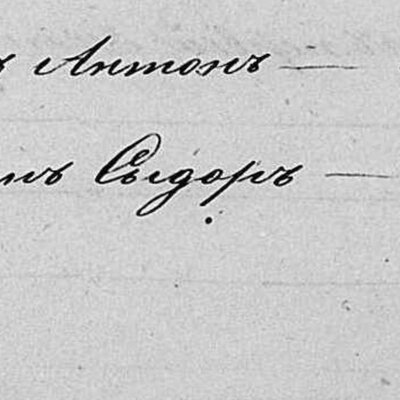 ъ Антонъ —
нъ Сидоръ —